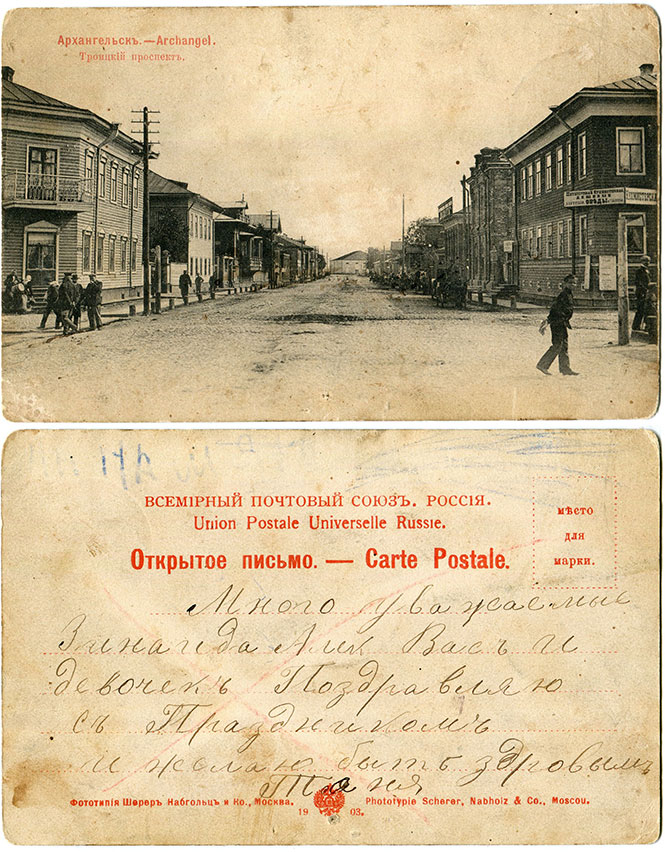 Архангельскъ.—Archangel.
Троицкій проспектъ.
ВСЕМІРНЫЙ ПОЧТОВЫЙ СОЮЗЪ. РОССІЯ.
Union Postale Universelle Russie.
Открытое письмо. — Carte Postale.
мѣсто
для
марки.
Много уважаемые
Зинаида Алек Васъ и
девочекъ Поздравляю
съ Праздникомъ
и желаю быть здровымъ
Таня
Фототипія Шереръ Набгольцъ и Ко., Москва.
Phototypie Scherer, Nabholz & Co., Moscou.
1903.